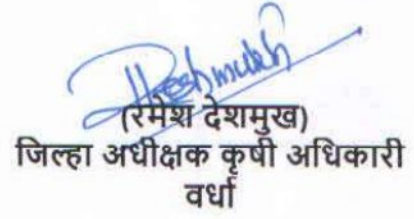 (रमेश देशमुख)
जिल्हा अधीक्षक कृषी अधिकारी
वर्धा